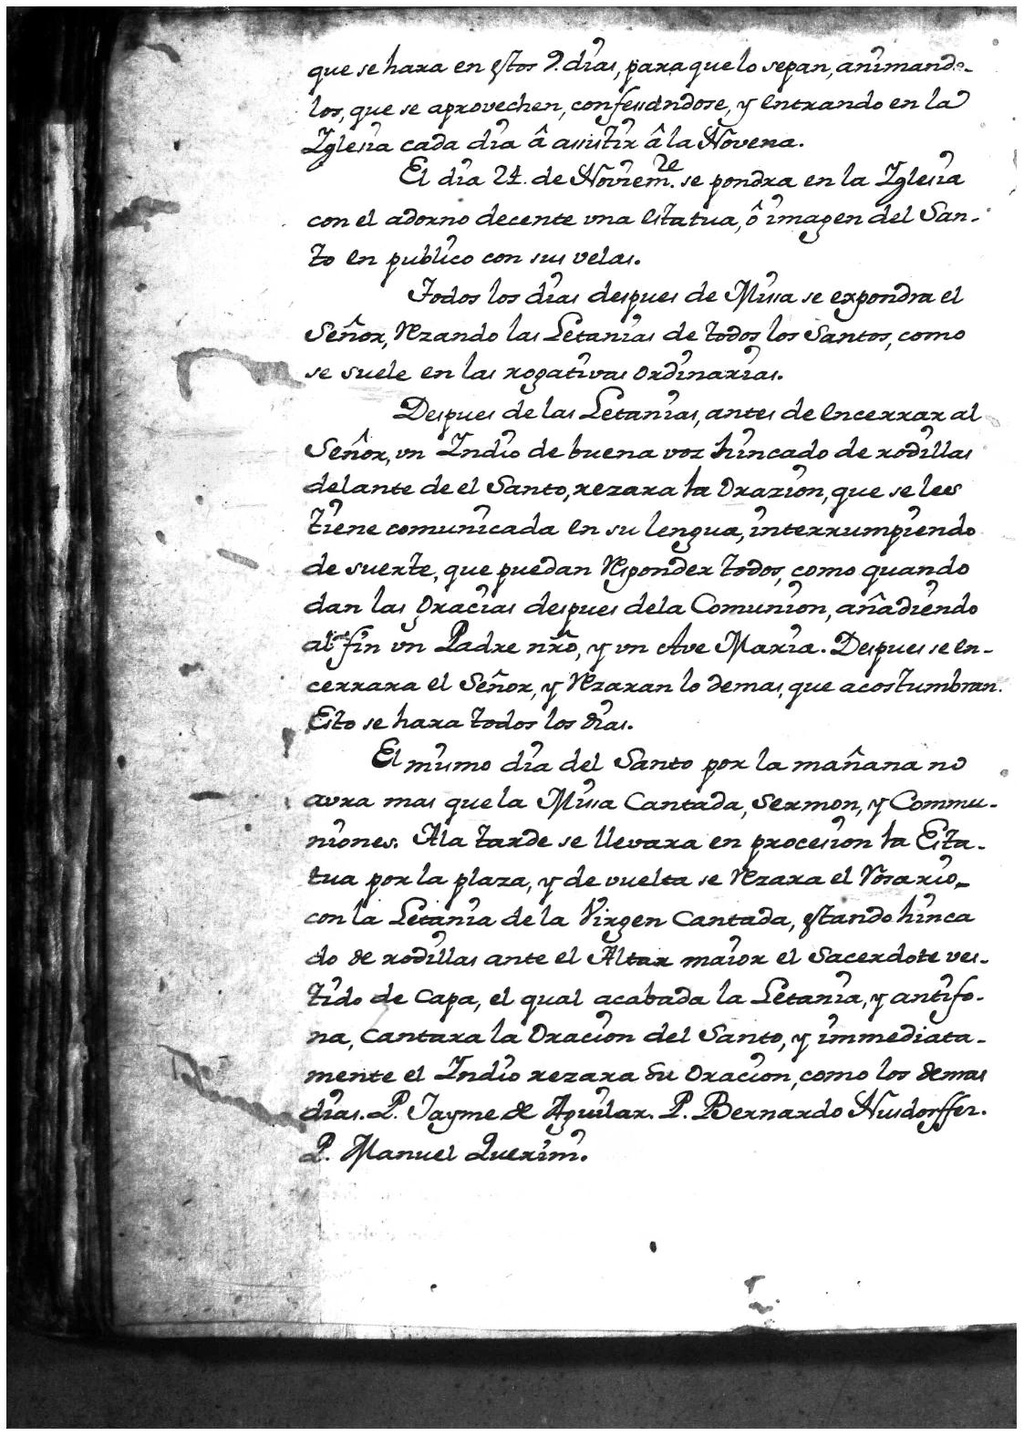 que se hara en estos 9. dias, para que lo sepan, animando-
los, que se aprovechen, confesandose, y entrando en la
Iglesia cada dia â assistir â la Novena.
El dia 24. de Noviem.re se pondra en la Iglesia
con el adorno decente una estatua, ô imagen del San-
to en publico con sus velas.
Todos los dias despues de Missa se expondra el
Señor, rezando las Letanias de todos los Santos, como
se suele en las rogativas ordinarias.
Despues de las Letanias, antes de encerrar al
Señor, un Indio de buena voz hincado de rodillas
delante de el Santo, rezara la Orazion, que se les
tiene comunicada en su lengua, interrumpiendo
de suerte, que puedan responder todos, como quando
dan las Gracias despues dela Comunion, añadiendo
al fin un Padre nrõ, y un Ave Maria. Despues se en-
cerrara el Señor, y rezaran lo demas, que acostumbran.
Esto se hara todos los dias.
El mismo dia del Santo por la mañana no
avra mas que la Missa Cantada, Sermon, y Commu-
niones. Ala tarde se llevara en procesion la Esta-
tua por la plaza, y de vuelta se rezara el Rosario,
con la Letania de la Virgen Cantada, estando hinca
do de rodillas ante el Altar maior el Sacerdote ves-
tido de Capa, el qual acabada la Letania, y antifo-
na, Cantara la Oracion del Santo, y immediata-
mente el Indio rezara su Oracion, como los demas
dias. P. Jayme de Aguilar. P. Bernardo Nusdorffer.
P. Manuel Querini.